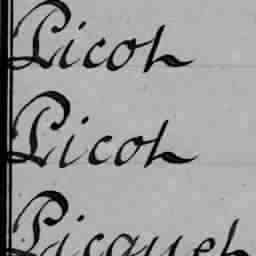 Picot
Picot
Picquet